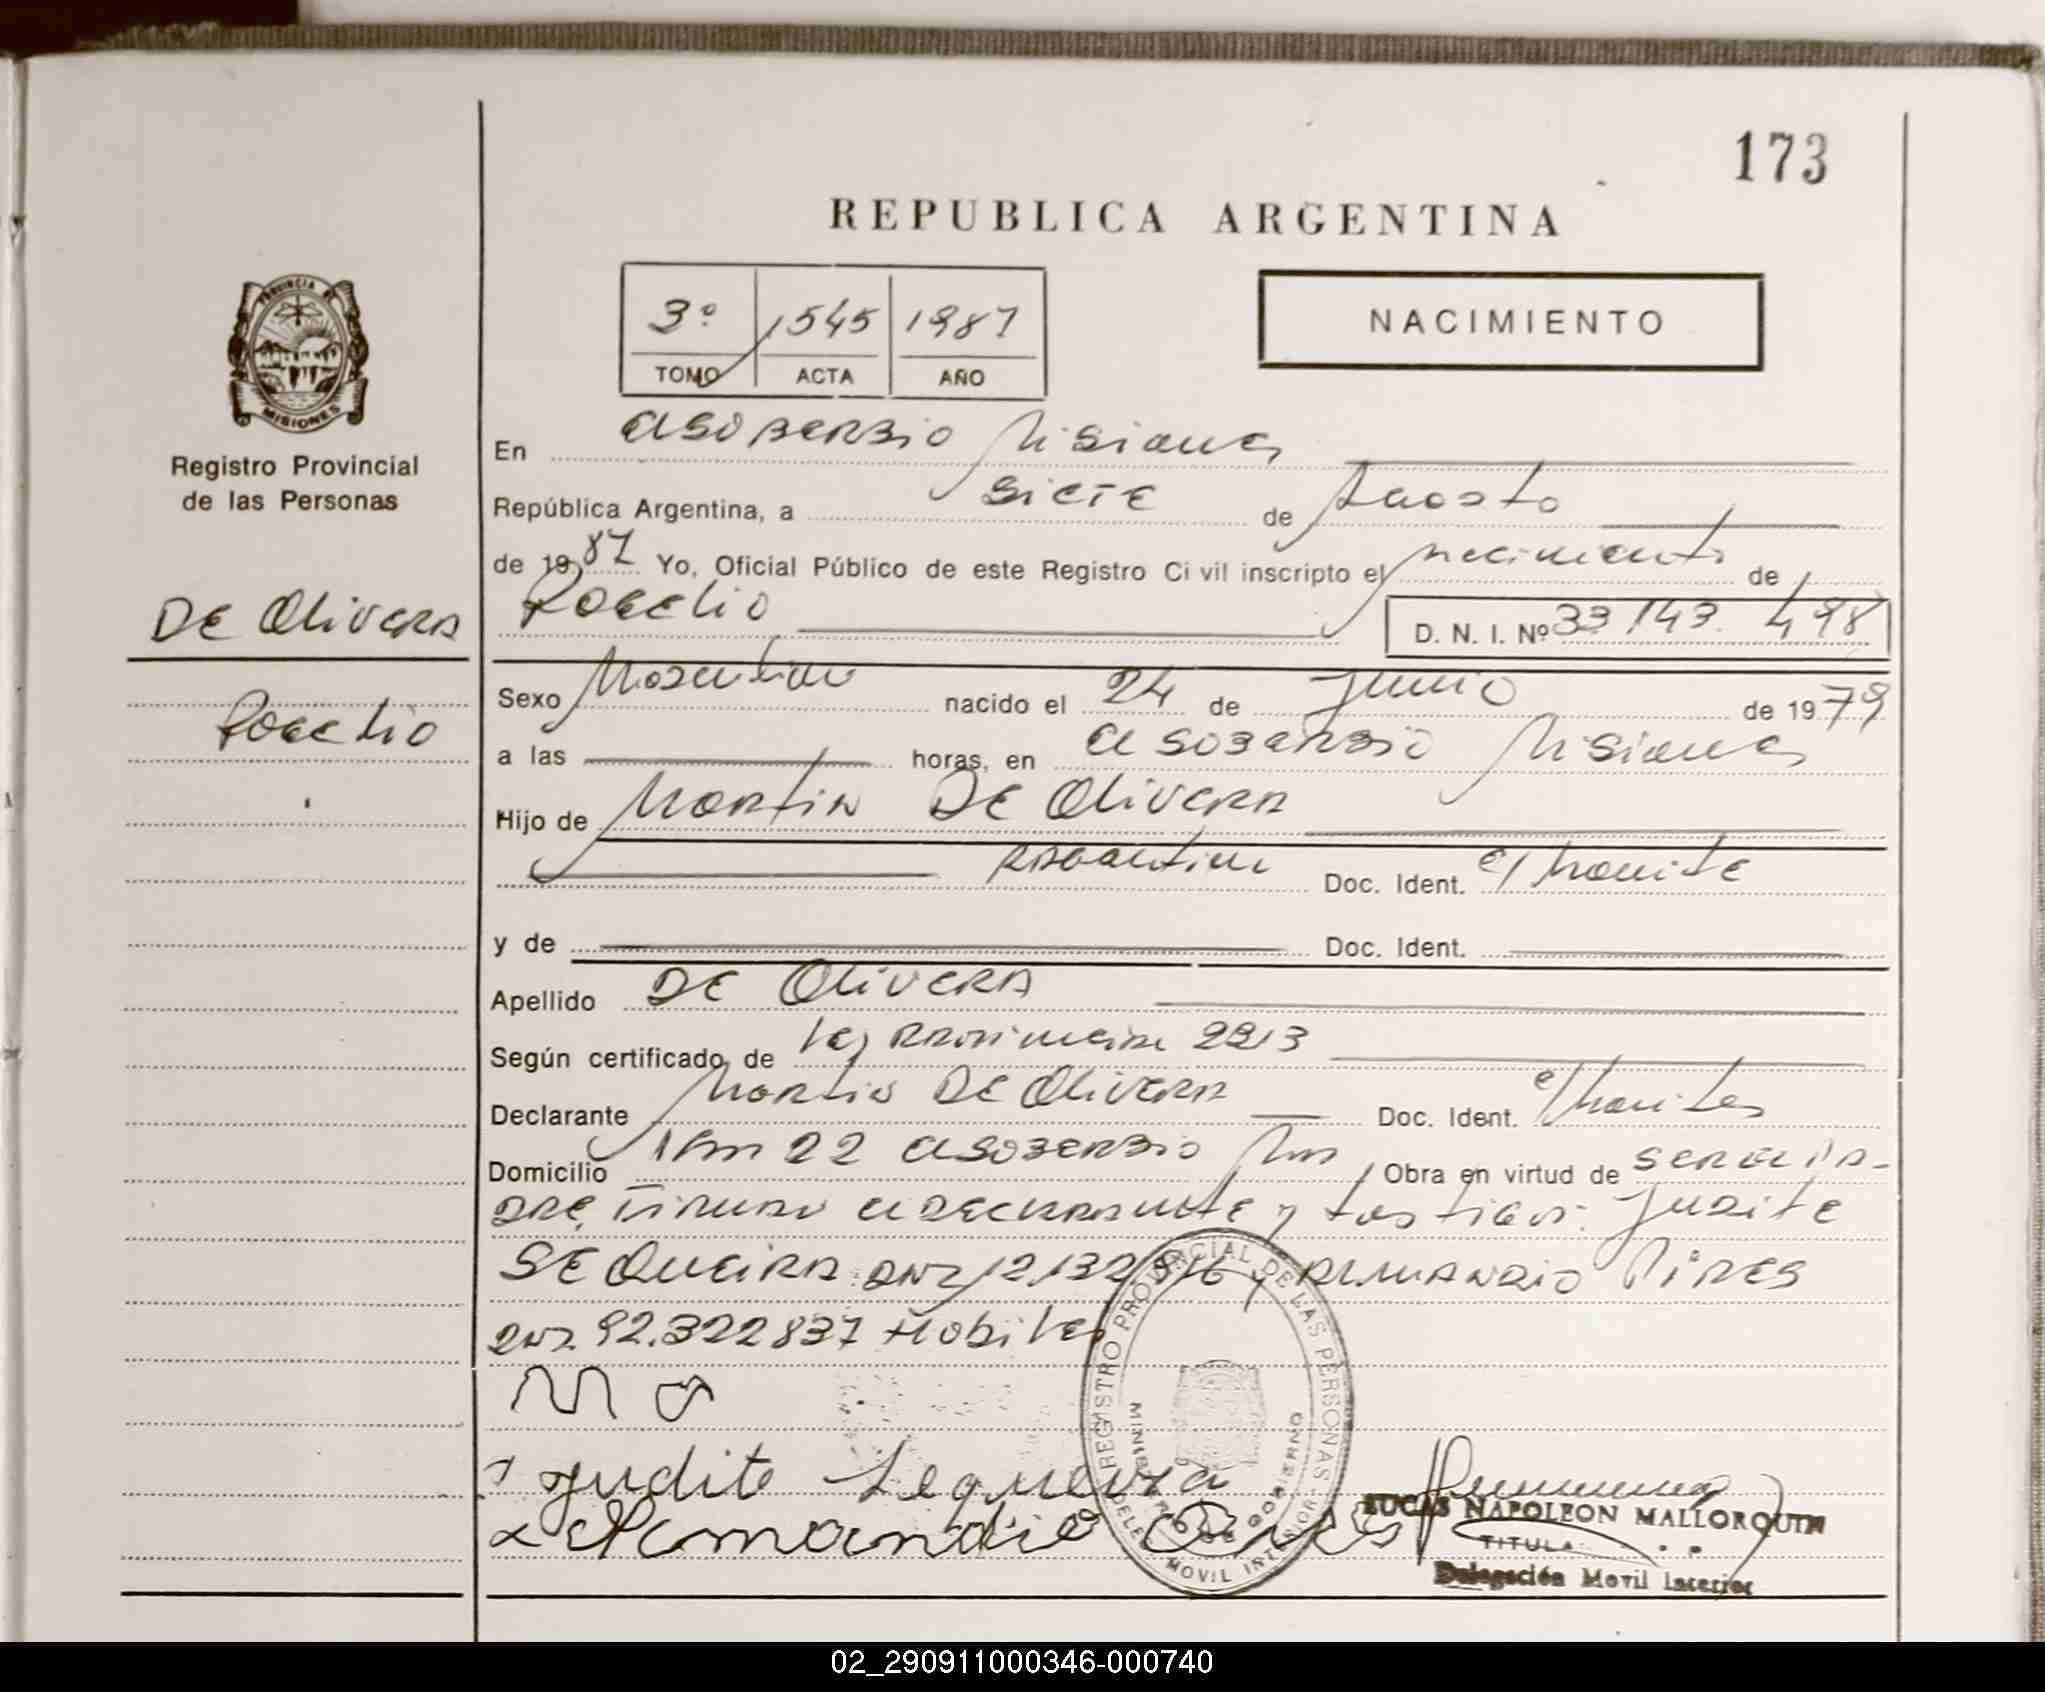 173
REPUBLICA ARGENTINA
3º 1545 1987
TOMO ACTA AÑO
NACIMIENTO
PROVINCIA DE
MISIONES
Registro Provincial
de las Personas
De Olivera
Rogelio
En Misiones
República Argentina, a siete de Agosto
de 1987 Yo, Oficial Público de este Registro Civil inscripto el nacimiento de
Rogelio D. N. I. Nº 33.143.498
Sexo Masculino nacido el 24 de Junio de 1979
a las horas, en Misiones
Hijo de Martin De Olivera
Argentino Doc. Ident. c/ Tramite
y de Doc. Ident.
Apellido De Olivera
Según certificado de Ley Provincial 2213
Declarante Martin De Olivera Doc. Ident. c/ Tramites
Domicilio Km 22 Obra en virtud de
el declarante y testigos: Judite
Sequeira DNI y Armandio Pires
DNI 92.322837
Judite Sequeira
Armandio Pires
REGISTRO PROVINCIAL DE LAS PERSONAS
DE GOBIERNO
MOVIL INTERIOR
LUCAS NAPOLEON MALLORQUIN
TITULAR
Delegación Movil Interior
02_290911000346-000740